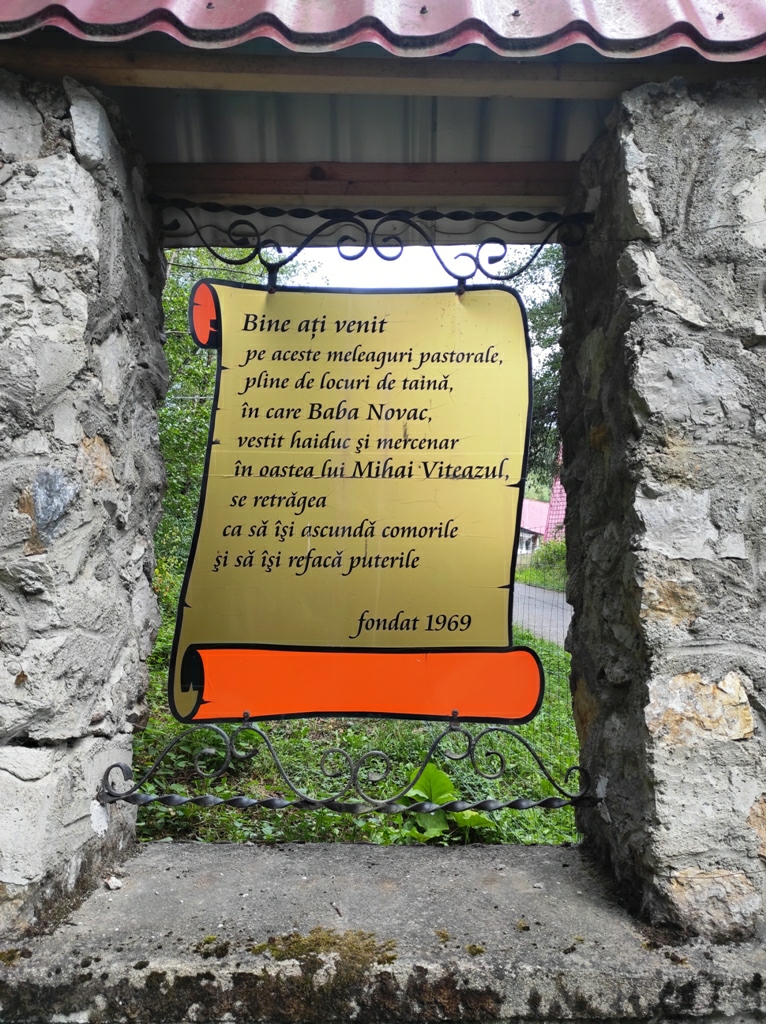 Bine ați venit
pe aceste meleaguri pastorale,
pline de locuri de taină,
în care Baba Novac,
vestit haiduc și mercenar
în oastea lui Mihai Viteazul,
se retrăgea
ca să își ascundă comorile
și să își refacă puterile
fondat 1969